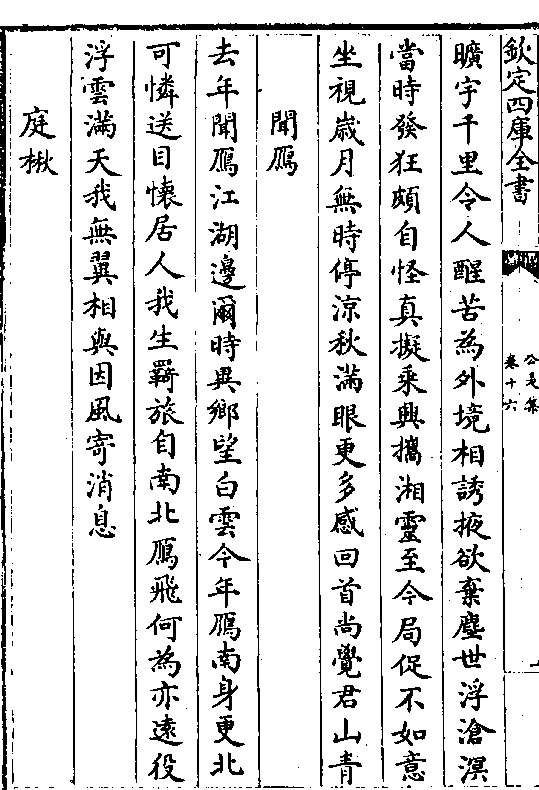 欽定四庫全書
公是集
卷十六
曠宇千里令人醒苦為外境相誘掖欲棄塵世浮滄溟
當時發狂頗自怪真擬乘興攜湘靈至今局促不如意
坐視歲月無時停涼秋滿眼更多感回首尚覺君山青
聞鴈
去年聞鴈江湖邊爾時異鄉望白雲今年鴈南身更北
可憐送目懷居人我生羇旅自南北鴈飛何為亦遠役
浮雲滿天我無翼相與因風寄消息
庭楸